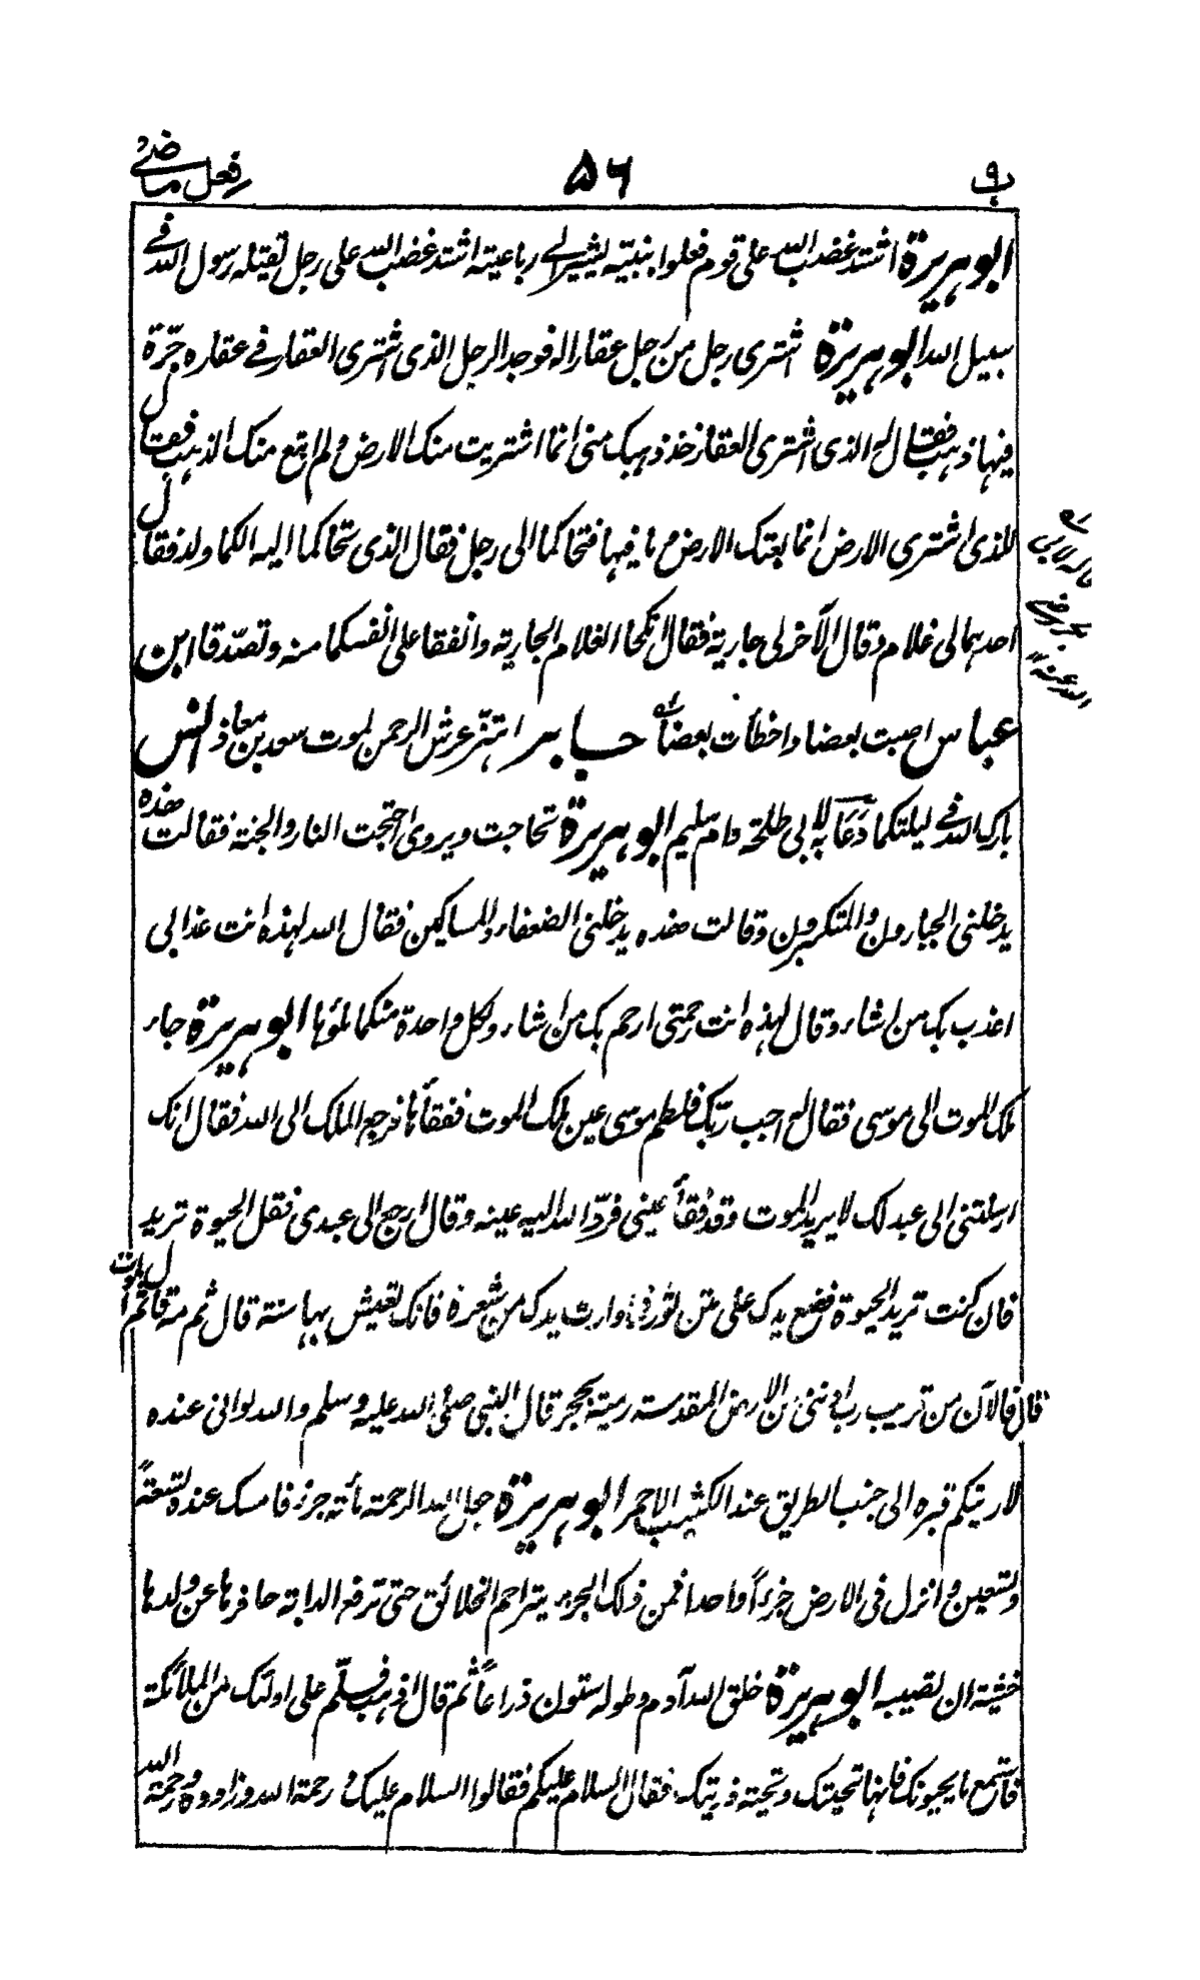 ب ۹ ۵۶ فعل ماضی
ابو ہریرة اشتد غضب اللہ علی قوم فعلوا بنبیہ یشیر الی رباعیتہ اشتد غضب اللہ علی رجل یقتلہ رسول اللہ فی
سبیل اللہ ابو ہریرة اشتری رجل من رجل عقارا لہ فوجد الرجل الذی اشتری العقار فی عقارہ جرّة
فیہا ذہب فقال لہ الذی اشتری العقار خذ ذہبک منی انما اشتریت منک الارض و لم ابتع منک الذہب فقال
للذی اشتری الارض انما بعتک الارض و ما فیہا فتحاکما الی رجل فقال الذی تحاکما الیہ الکما ولد فقال
احدہما لی غلام و قال الآخر لی جاریة فقال انکحا الغلام الجاریة و انفقا علی انفسکما منہ و تصدّقا ابن
عباس اصبت بعضا و اخطأت بعضا جابر اہتزّ عرش الرحمن لموت سعد بن معاذ انس
بارک اللہ فی لیلتکما دعا لابی طلحة و ام سلیم ابو ہریرة تحاجت و یروی احتجت النار و الجنة فقالت ھذہ
یدخلنی الجبارون و المتکبرون و قالت ھذہ یدخلنی الضعفاء و المساکین فقال اللہ لہذہ انت عذابی
اعذب بک من اشاء و قال لہذہ انت رحمتی ارحم بک من اشاء و لکل واحدة منکما ملؤہا ابو ہریرة جاء
ملک الموت الی موسی فقال لہ اجب ربّک فلطم موسی عین ملک الموت ففقأہا فرجع الملک الی اللہ فقال انک
ارسلتنی الی عبد لک لا یرید الموت و قد فقأ عینی فردّ اللہ الیہ عینہ و قال ارجع الی عبدی فقل الحیوة ترید
فان کنت ترید الحیوة فضع یدک علی متن ثور فما وارت یدک من شعرة فانک تعیش بہا سنة قال ثم مہ قال ثم الموت
قال فالآن من قریب رب ادننی من الارض المقدسة رمیة بحجر قال النبی صلی اللہ علیہ وسلم و اللہ لو انی عندہ
لاریتکم قبرہ الی جنب الطریق عند الکثیب الاحمر ابو ہریرة جعل اللہ الرحمة مأتہ جزء فامسک عندہ تسعة
و تسعین و انزل فی الارض جزءاً واحدا فمن ذلک الجزء یتراحم الخلائق حتی ترفع الدابة حافرہا عن ولدہا
خشیة ان تصیبہ ابو ہریرة خلق اللہ آدم و طولہ ستون ذراعاً ثم قال اذہب فسلّم علی اولئک من الملائکة
فاستمع ما یحیونک فانہا تحیتک و تحیة ذریتک فقال السلام علیکم فقالوا السلام علیک و رحمة اللہ و زادوہ و رحمة اللہ